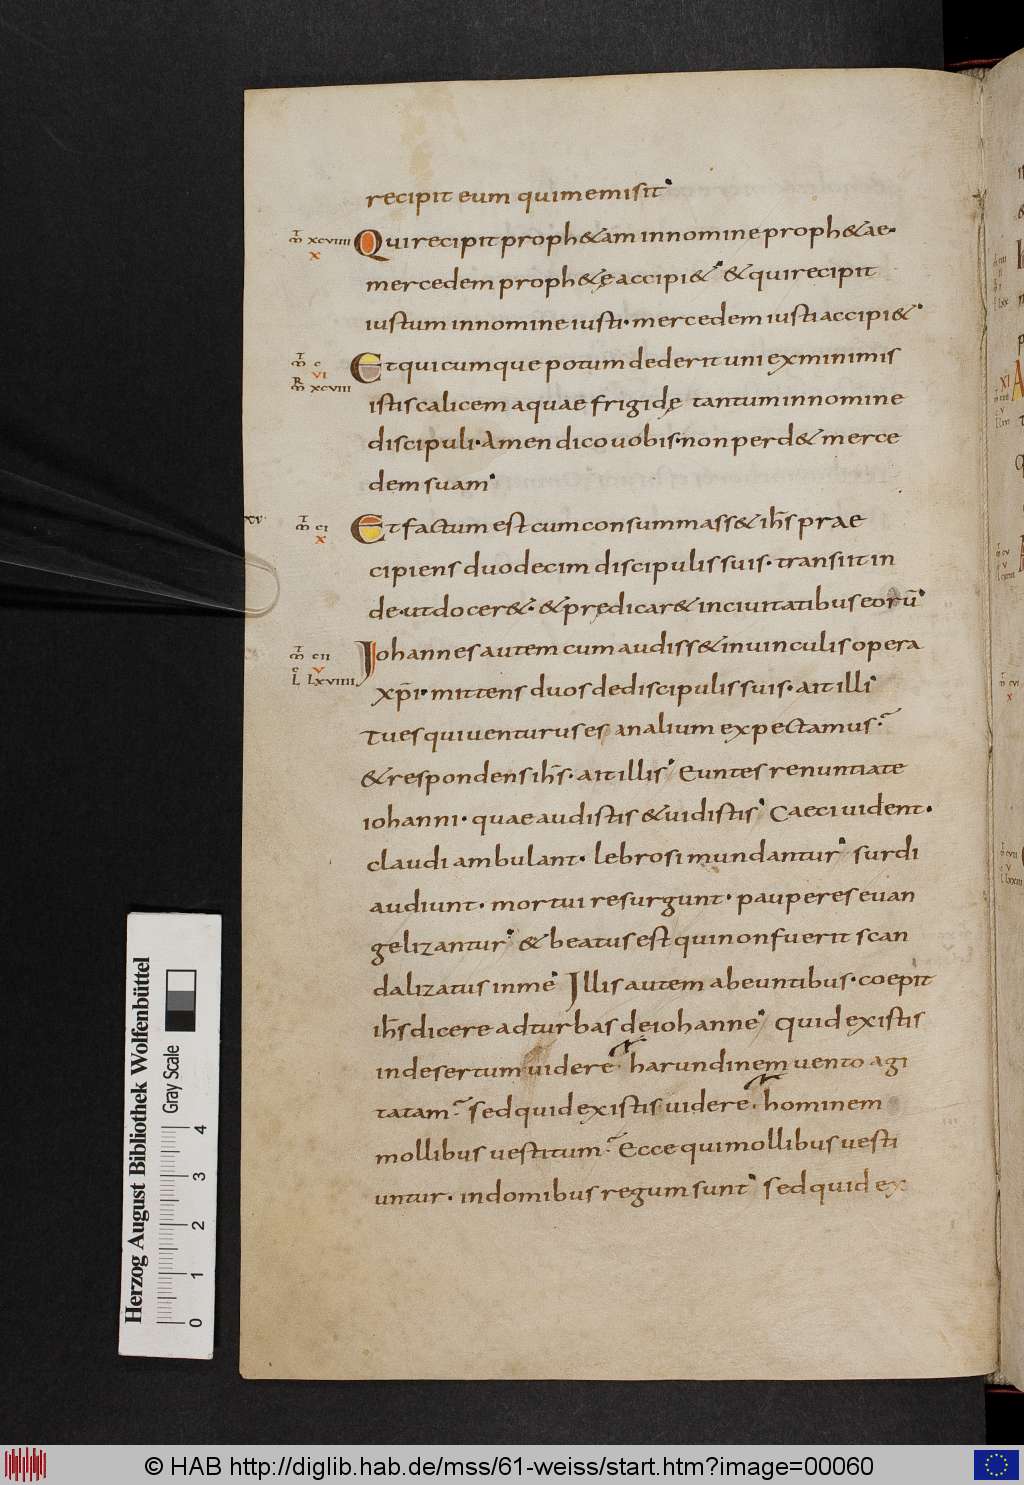 recipit eum qui me misit
Qui recipit proph&am in nomine proph&ae·
mercedem proph&ę accipi& & qui recipit
iustum in nomine iusti· mercedem iusti accipi&
Et quicumque potum dederit uni ex minimis
istis calicem aquae frigidę tantum in nomine
discipuli· Amen dico uobis· non perd& merce
dem suam
Et factum est cum consummass& ih̄s prae
cipiens duodecim discipulis suis· transiit in
de· ut docer&· & prędicar& in ciuitatibus eorū
Iohannes autem cum audiss& in uinculis opera
xp̄i· mittens duos de discipulis suis· ait illi
Tu es qui uenturus es an alium expectamus?
& respondens ih̄s· ait illis Euntes renuntiate
iohanni· quae audistis & uidistis Caeci uident·
claudi ambulant· lebrosi mundantur surdi
audiunt· mortui resurgunt· pauperes euan
gelizantur & beatus est qui non fuerit scan
dalizatus in me Illis autem abeuntibus· coepit
ih̄s dicere ad turbas de iohanne quid existis
in desertum uidere? harundinem uento agi
tatam? sed quid existis uidere? hominem
mollibus uestitum? Ecce qui mollibus uesti
untur· in domibus regum sunt sed quid ex
XCVIIII
X
C
VI
XCVIII
XV
CI
X
CII
V
LXVIIII
Herzog August Bibliothek Wolfenbüttel
Gray Scale
0 1 2 3 4
© HAB http://diglib.hab.de/mss/61-weiss/start.htm?image=00060